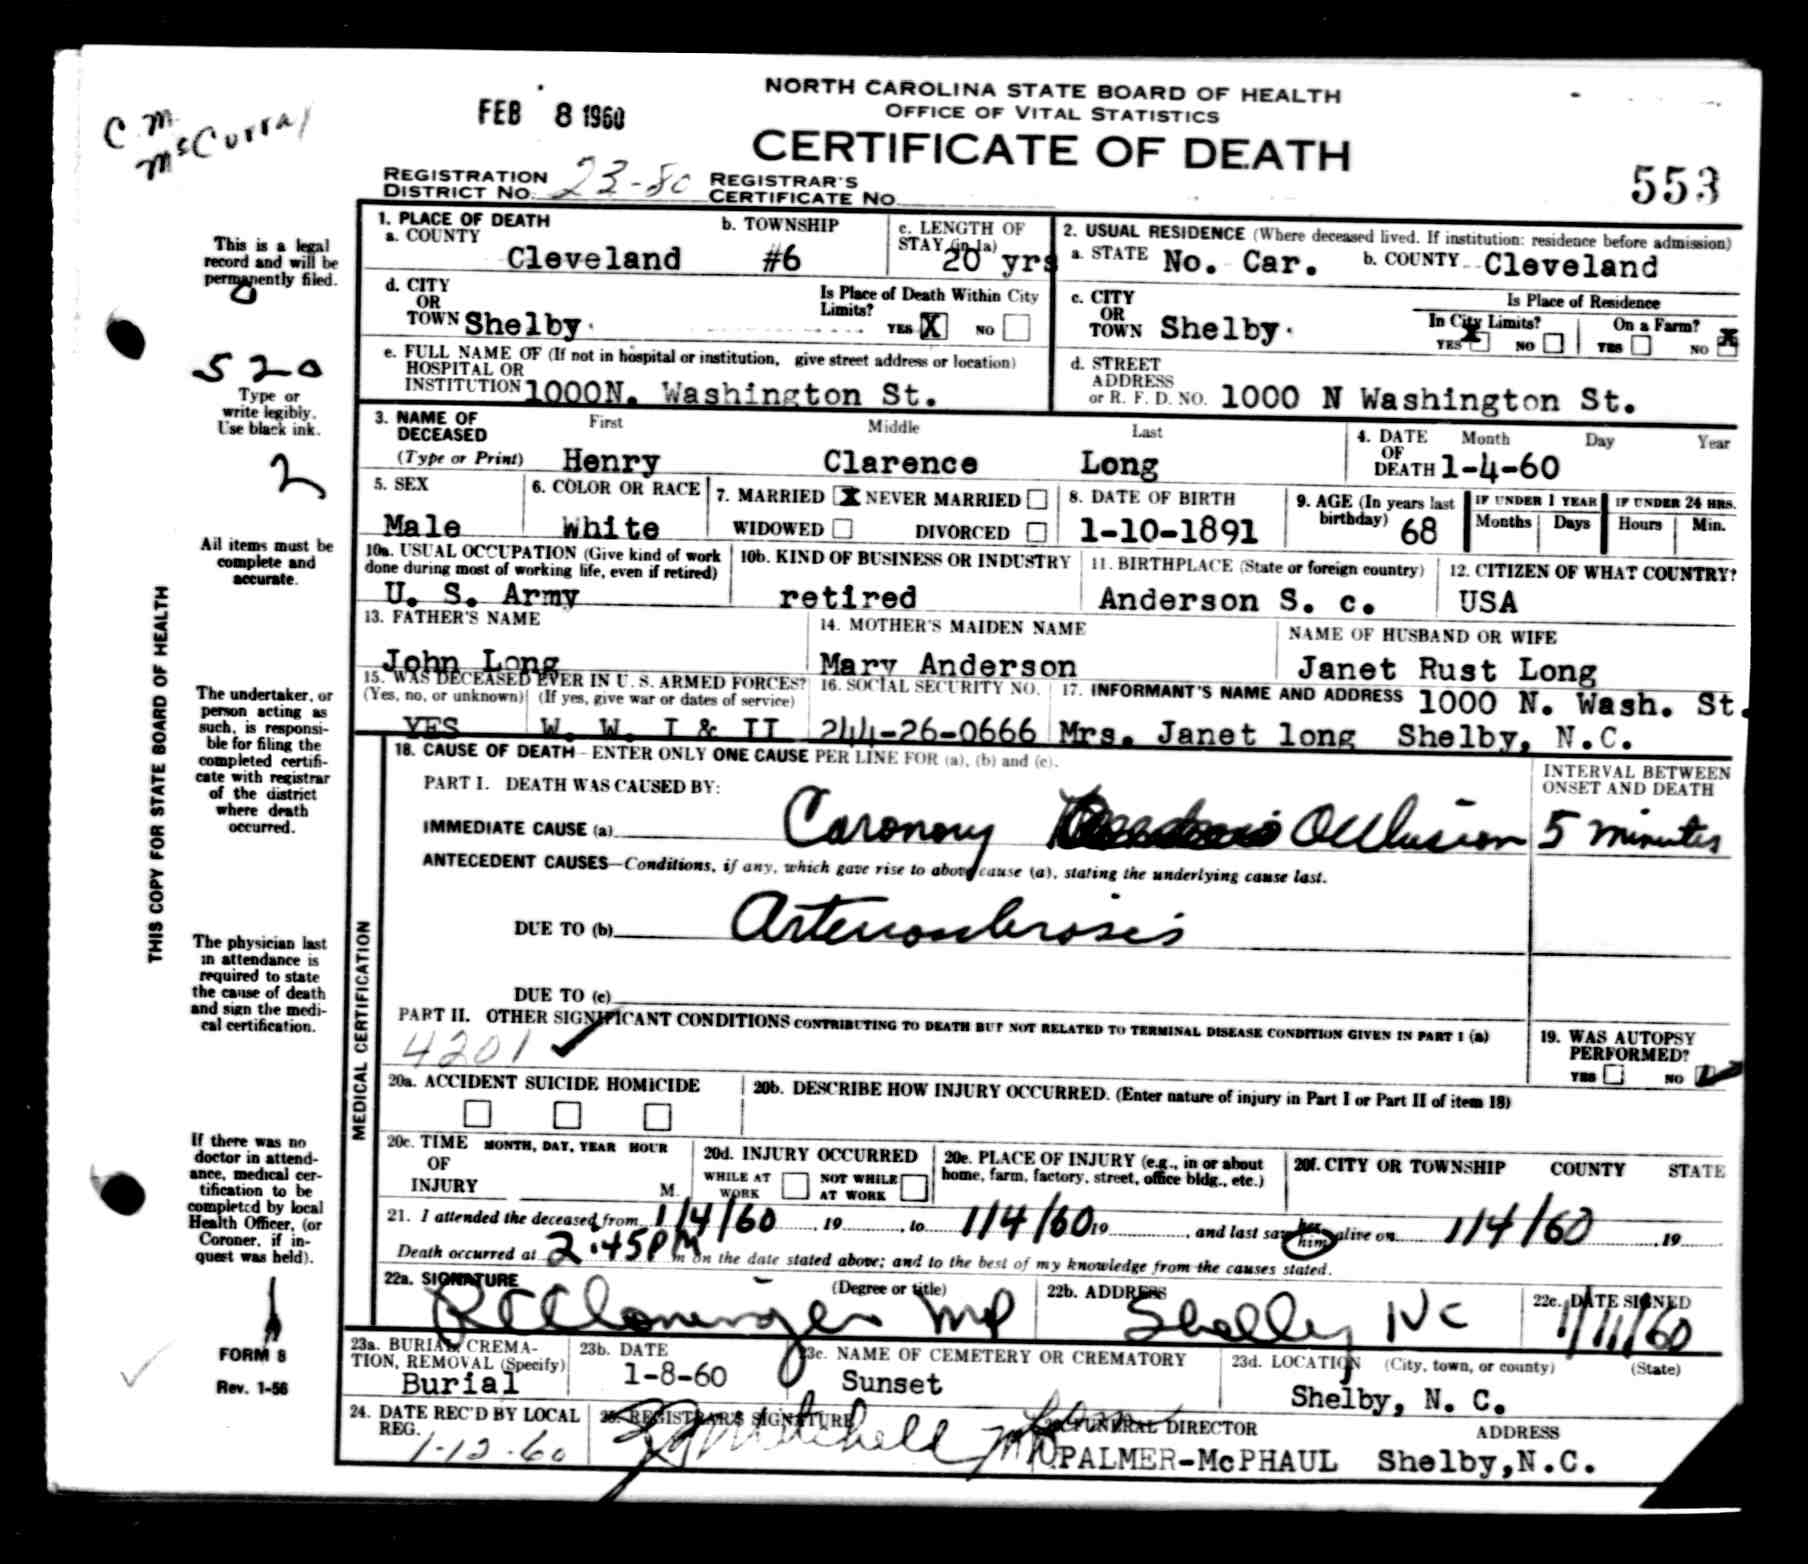 C. M.
McCurray
FEB 8 1960
NORTH CAROLINA STATE BOARD OF HEALTH
OFFICE OF VITAL STATISTICS
CERTIFICATE OF DEATH
REGISTRATION DISTRICT NO. 23-80 REGISTRAR'S CERTIFICATE NO.
553
This is a legal record and will be permanently filed.
520
Type or write legibly. Use black ink.
2
All items must be complete and accurate.
THIS COPY FOR STATE BOARD OF HEALTH
The undertaker, or person acting as such, is responsible for filing the completed certificate with registrar of the district where death occurred.
The physician last in attendance is required to state the cause of death and sign the medical certification.
If there was no doctor in attendance, medical certification to be completed by local Health Officer, (or Coroner, if inquest was held).
FORM 8
Rev. 1-56
1. PLACE OF DEATH
a. COUNTY Cleveland b. TOWNSHIP #6 c. LENGTH OF STAY (in 1a) 20 yrs
2. USUAL RESIDENCE (Where deceased lived. If institution: residence before admission)
a. STATE No. Car. b. COUNTY Cleveland
d. CITY OR TOWN Shelby Is Place of Death Within City Limits? YES X NO
c. CITY OR TOWN Shelby Is Place of Residence In City Limits? YES X NO On a Farm? YES NO X
e. FULL NAME OF (If not in hospital or institution, give street address or location) HOSPITAL OR INSTITUTION 1000N. Washington St.
d. STREET ADDRESS or R. F. D. NO. 1000 N Washington St.
3. NAME OF DECEASED (Type or Print) First Henry Middle Clarence Last Long
4. DATE OF DEATH Month Day Year 1-4-60
5. SEX Male
6. COLOR OR RACE White
7. MARRIED X NEVER MARRIED WIDOWED DIVORCED
8. DATE OF BIRTH 1-10-1891
9. AGE (In years last birthday) 68 IF UNDER 1 YEAR Months Days IF UNDER 24 HRS. Hours Min.
10a. USUAL OCCUPATION (Give kind of work done during most of working life, even if retired) U. S. Army
10b. KIND OF BUSINESS OR INDUSTRY retired
11. BIRTHPLACE (State or foreign country) Anderson S. c.
12. CITIZEN OF WHAT COUNTRY? USA
13. FATHER'S NAME John Long
14. MOTHER'S MAIDEN NAME Mary Anderson
NAME OF HUSBAND OR WIFE Janet Rust Long
15. WAS DECEASED EVER IN U. S. ARMED FORCES? (Yes, no, or unknown) YES (If yes, give war or dates of service) W. W. I & II
16. SOCIAL SECURITY NO. 244-26-0666
17. INFORMANT'S NAME AND ADDRESS 1000 N. Wash. St.
Mrs. Janet long Shelby, N.C.
MEDICAL CERTIFICATION
18. CAUSE OF DEATH—ENTER ONLY ONE CAUSE PER LINE FOR (a), (b) and (c).
INTERVAL BETWEEN ONSET AND DEATH
PART I. DEATH WAS CAUSED BY:
IMMEDIATE CAUSE (a) Coronory Occlusion 5 minutes
ANTECEDENT CAUSES—Conditions, if any, which gave rise to above cause (a), stating the underlying cause last.
DUE TO (b) Arteriosclerosis
DUE TO (c)
PART II. OTHER SIGNIFICANT CONDITIONS CONTRIBUTING TO DEATH BUT NOT RELATED TO TERMINAL DISEASE CONDITION GIVEN IN PART I (a)
4201
19. WAS AUTOPSY PERFORMED? YES NO
20a. ACCIDENT SUICIDE HOMICIDE
20b. DESCRIBE HOW INJURY OCCURRED. (Enter nature of injury in Part I or Part II of item 18)
20c. TIME OF INJURY MONTH, DAY, YEAR HOUR M.
20d. INJURY OCCURRED WHILE AT WORK NOT WHILE AT WORK
20e. PLACE OF INJURY (e.g., in or about home, farm, factory, street, office bldg., etc.)
20f. CITY OR TOWNSHIP COUNTY STATE
21. I attended the deceased from 1/4/60, 19, to 1/4/60 19, and last saw her him alive on 1/4/60, 19
Death occurred at 2:45 PM m on the date stated above; and to the best of my knowledge from the causes stated.
22a. SIGNATURE (Degree or title) MD
22b. ADDRESS Shelby NC
22c. DATE SIGNED 1/11/60
23a. BURIAL, CREMATION, REMOVAL (Specify) Burial
23b. DATE 1-8-60
23c. NAME OF CEMETERY OR CREMATORY Sunset
23d. LOCATION (City, town, or county) (State) Shelby, N. C.
24. DATE REC'D BY LOCAL REG. 1-12-60
25. REGISTRAR'S SIGNATURE Mitchell
FUNERAL DIRECTOR ADDRESS
PALMER-McPHAUL Shelby,N.C.